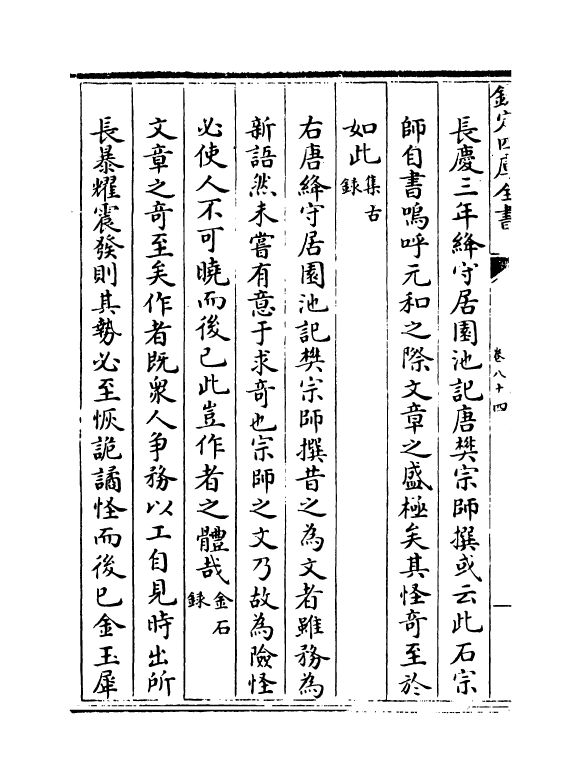 欽定四庫全書
卷八十四
長慶三年絳守居園池記唐樊宗師撰或云此石宗
師自書嗚呼元和之際文章之盛極矣其怪奇至於
如此集古錄
右唐絳守居園池記樊宗師撰昔之為文者雖務為
新語然未嘗有意于求奇也宗師之文乃故為險怪
必使人不可曉而後已此豈作者之體哉金石錄
文章之奇至矣作者既衆人爭務以工自見時出所
長暴耀震發則其勢必至恢詭譎怪而後已金玉犀